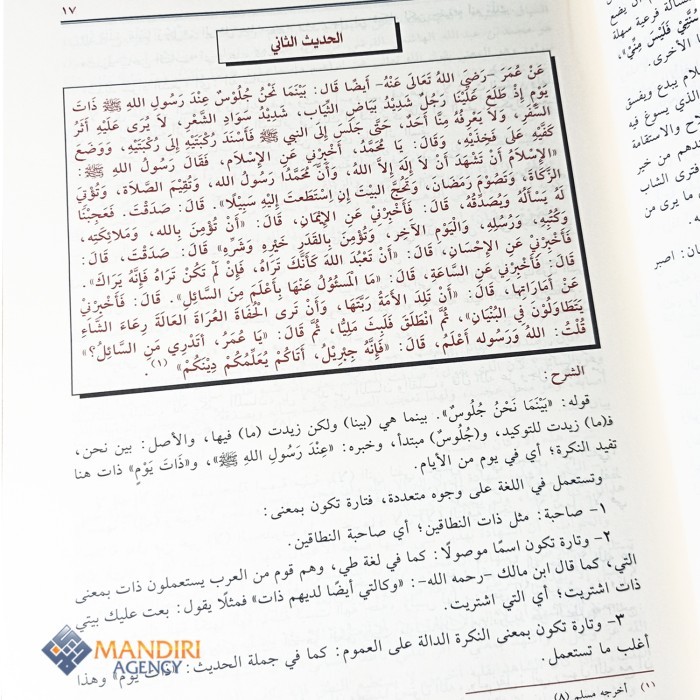 ١٧
الحديث الثاني
عَنْ عُمَرَ -رَضِيَ اللهُ تَعَالَى عَنْهُ- أَيضًا قَالَ: بَيْنَمَا نَحْنُ جُلُوْسٌ عِنْدَ رَسُولِ اللهِ ﷺ ذَاتَ
يَوْمٍ إِذْ طَلَعَ عَلَيْنَا رَجُلٌ شَدِيْدُ بَيَاضِ الثِّيَابِ، شَدِيْدُ سَوَادِ الشَّعْرِ، لَا يُرَى عَلَيْهِ أَثَرُ
السَّفَرِ، وَلَا يَعْرِفُهُ مِنَّا أَحَدٌ، حَتَّى جَلَسَ إِلَى النبي ﷺ فَأَسْنَدَ رُكْبَتَيْهِ إِلَى رُكْبَتَيْهِ، وَوَضَعَ
كَفَّيْهِ عَلَى فَخِذَيْهِ، وَقَالَ: يَا مُحَمَّدُ، أَخْبِرْنِي عَنِ الإِسْلَامِ، فَقَالَ رَسُولُ اللهِ ﷺ:
«الإِسْلَامُ أَنْ تَشْهَدَ أَنْ لَا إِلَهَ إِلَّا اللهُ، وَأَنَّ مُحَمَّدًا رَسُولُ الله، وَتُقِيْمَ الصَّلَاةَ، وَتُؤْتِيَ
الزَّكَاةَ، وَتَصُوْمَ رَمَضَانَ، وَتَحُجَّ البَيْتَ إِنِ اسْتَطَعتَ إِلَيْهِ سَبِيْلًا». قَالَ: صَدَقْتَ. فَعَجِبْنَا
لَهُ يَسْأَلُهُ وَيُصَدِّقُهُ، قَالَ: فَأَخْبِرْنِي عَنِ الإِيْمَانِ، قَالَ: «أَنْ تُؤْمِنَ بِالله، وَمَلَائِكَتِهِ،
وَكُتُبِهِ، وَرُسُلِهِ، وَالْيَوْمِ الآخِرِ، وَتُؤْمِنَ بِالقَدَرِ خَيْرِهِ وَشَرِّهِ» قَالَ: صَدَقْتَ، قَالَ:
فَأَخْبِرْنِي عَنِ الإِحْسَانِ، قَالَ: «أَنْ تَعْبُدَ اللهَ كَأَنَّكَ تَرَاهُ، فَإِنْ لَمْ تَكُنْ تَرَاهُ فَإِنَّهُ يَرَاكَ».
قَالَ: فَأَخْبِرْنِي عَنِ السَّاعَةِ، قَالَ: «مَا المَسْئُولُ عَنْهَا بِأَعْلَمَ مِنَ السَّائِلِ». قَالَ: فَأَخْبِرْنِي
عَنْ أَمَارَاتِهَا، قَالَ: «أَنْ تَلِدَ الأَمَةُ رَبَّتَهَا، وَأَنْ تَرَى الحُفَاةَ العُرَاةَ العَالَةَ رِعَاءَ الشَّاءِ
يَتَطَاوَلُوْنَ فِي البُنْيَانِ»، ثُمَّ انْطَلَقَ فَلَبِثَ مَلِيًّا، ثُمَّ قَالَ: «يَا عُمَرُ، أَتَدْرِي مَنِ السَّائِلُ؟»
قُلْتُ: اللهُ وَرَسُوله أَعْلَمُ، قَالَ: «فَإِنَّهُ جِبْرِيْلُ، أَتَاكُمْ يُعَلِّمُكُمْ دِيْنَكُمْ» (١).
الشرح:
قوله: «بَيْنَمَا نَحْنُ جُلُوسٌ». بينما هي (بينا) ولكن زيدت (ما) فيها، والأصل: بين نحن،
فـ(ما) زيدت للتوكيد، و(جُلُوسٌ) مبتدأ، وخبره: «عِنْدَ رَسُولِ اللهِ ﷺ»، و«ذَاتَ يَوْمٍ» ذات هنا
تفيد النكرة؛ أي في يوم من الأيام.
وتستعمل في اللغة على وجوه متعددة، فتارة تكون بمعنى:
١- صاحبة: مثل ذات النطاقين؛ أي صاحبة النطاقين.
٢- وتارة تكون اسمًا موصولًا: كما في لغة طي، وهم قوم من العرب يستعملون ذات بمعنى
التي، كما قال ابن مالك -رحمه الله-: «وكالتي أيضًا لديهم ذات» فمثلًا يقول: بعت عليك بيتي
ذات اشتريت؛ أي التي اشتريت.
٣- وتارة تكون بمعنى النكرة الدالة على العموم: كما في جملة الحديث: «ذات يوم» وهذا
أغلب ما تستعمل.
(١) أخرجه مسلم (٨)
مسألة فرعية سهلة
فَلَيْسَ مِنِّي»،
ا الأخرى.
لام يبدع ويفسق
الذي يسوغ فيه
لاح والاستقامة
ندهم من خير
فترى الشاب
ما يرى من
ان: اصبر
MANDIRI
AGENCY